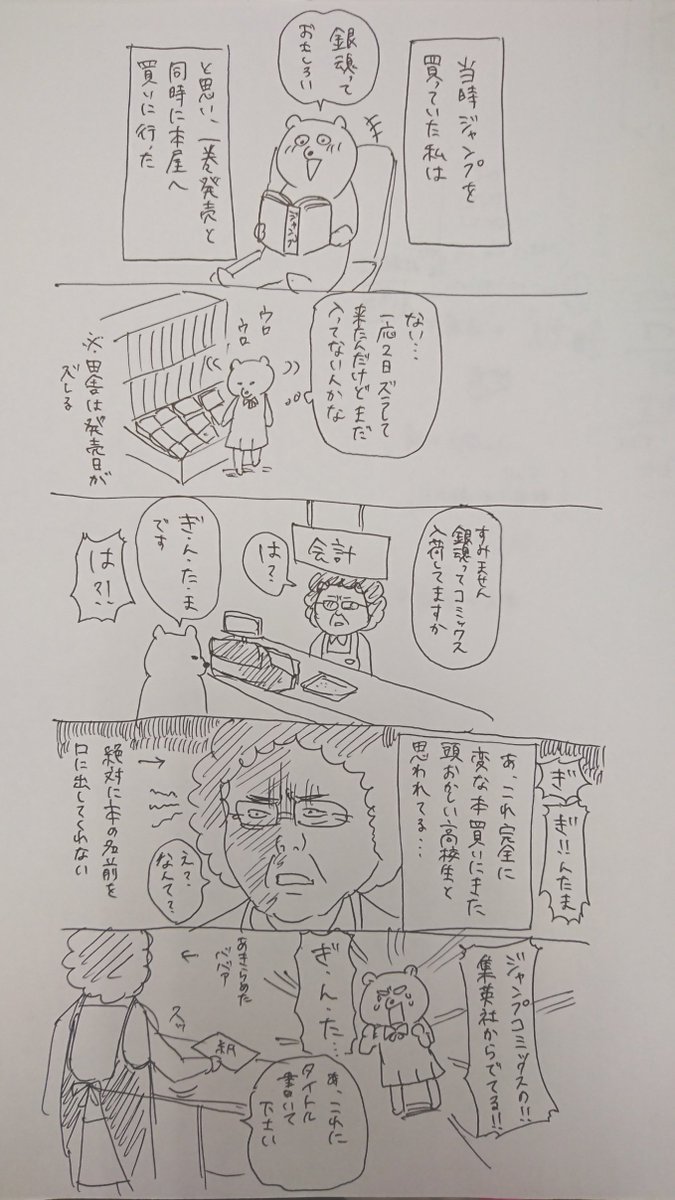 当時ジャンプを
買っていた私は
銀魂って
おもしろい
ジャンプ
と思い、一巻発売と
同時に本屋へ
買いに行った
ない…
一応2日ズラして
来たんだけどまだ
入ってないんかな
ウロ
ウロ
※田舎は発売日が
ズレる
すみません
銀魂ってコミックス
入荷してますか
会計
は?
ぎ・ん・た・ま
です
は?!
ぎ
ぎ!!んたま
あ、これ完全に
変な本買いにきた
頭おかしい高校生と
思われてる…
え?
なんて?
→
絶対に本の名前を
口に出してくれない
ジャンプコミックスの!!
集英社からでてる!!
ぎ・ん・た…
あきらめた
ババア
スッ
紙
あ、これに
タイトル
書いて
下さい